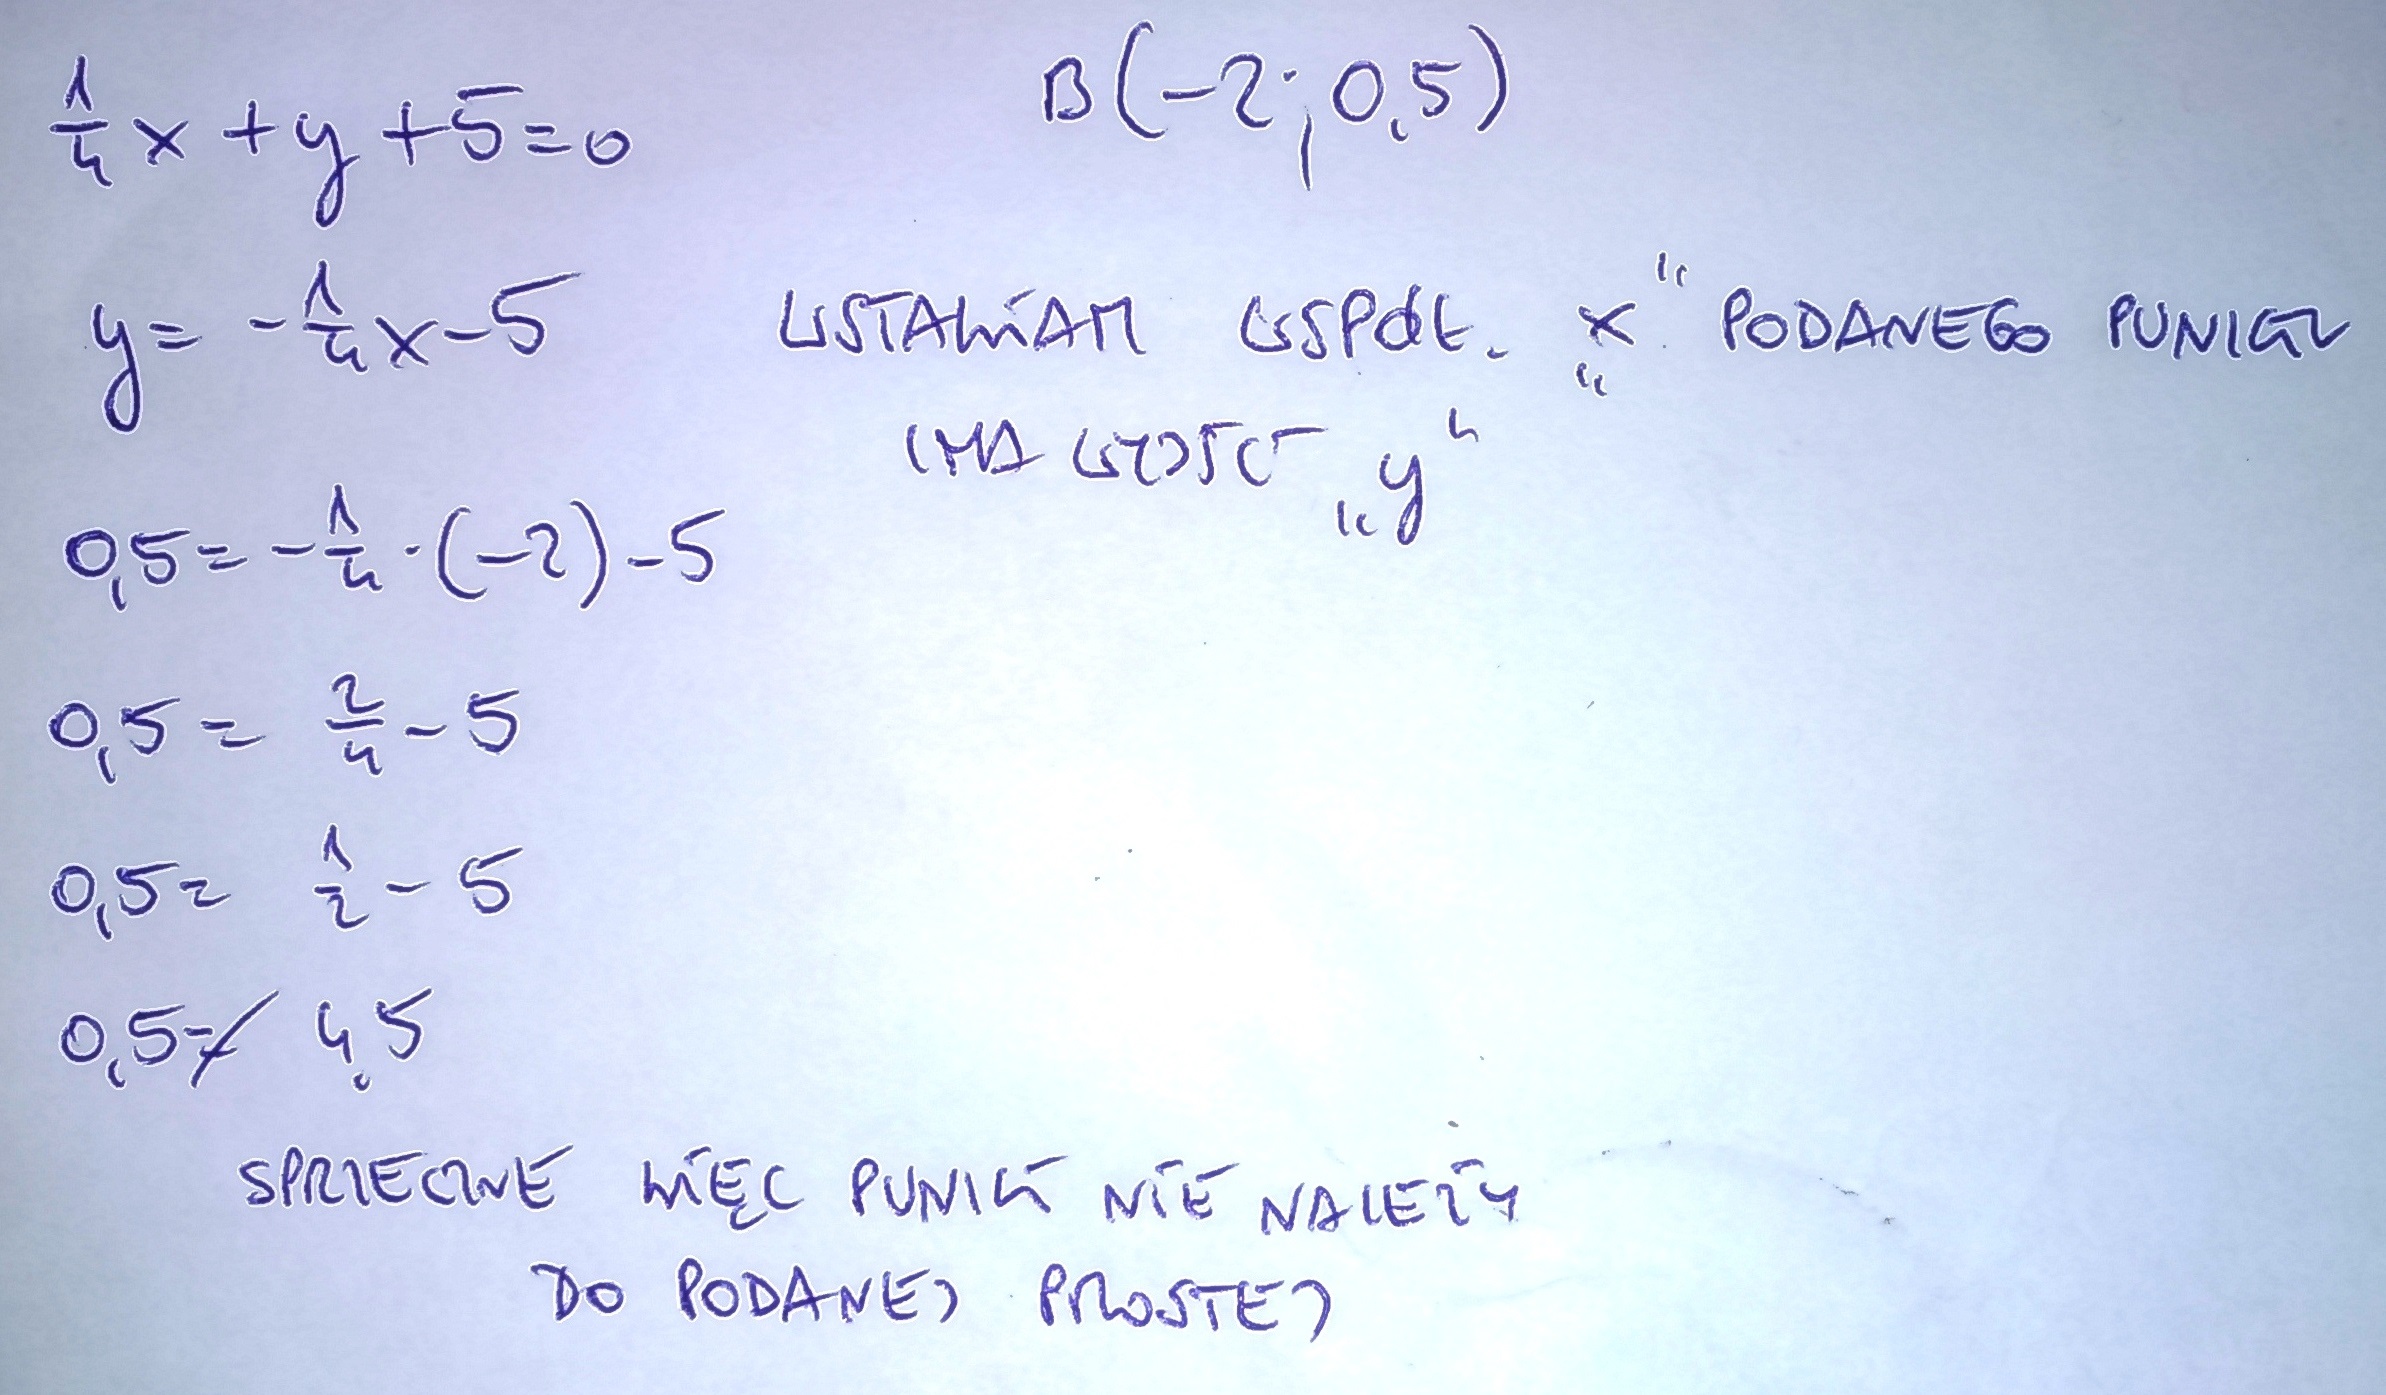 1/4 x + y + 5 = 0
B(-2; 0,5)
y = -1/4 x - 5 WSTAWIAM WSPÓŁ. „x" PODANEGO PUNKTU
0,5 = -1/4 · (-2) - 5
0,5 = 2/4 - 5
0,5 = 1/2 - 5
0,5 ≠ 4,5
SPRZECZNE WIĘC PUNKT NIE NALEŻY
DO PODANEJ PROSTEJ